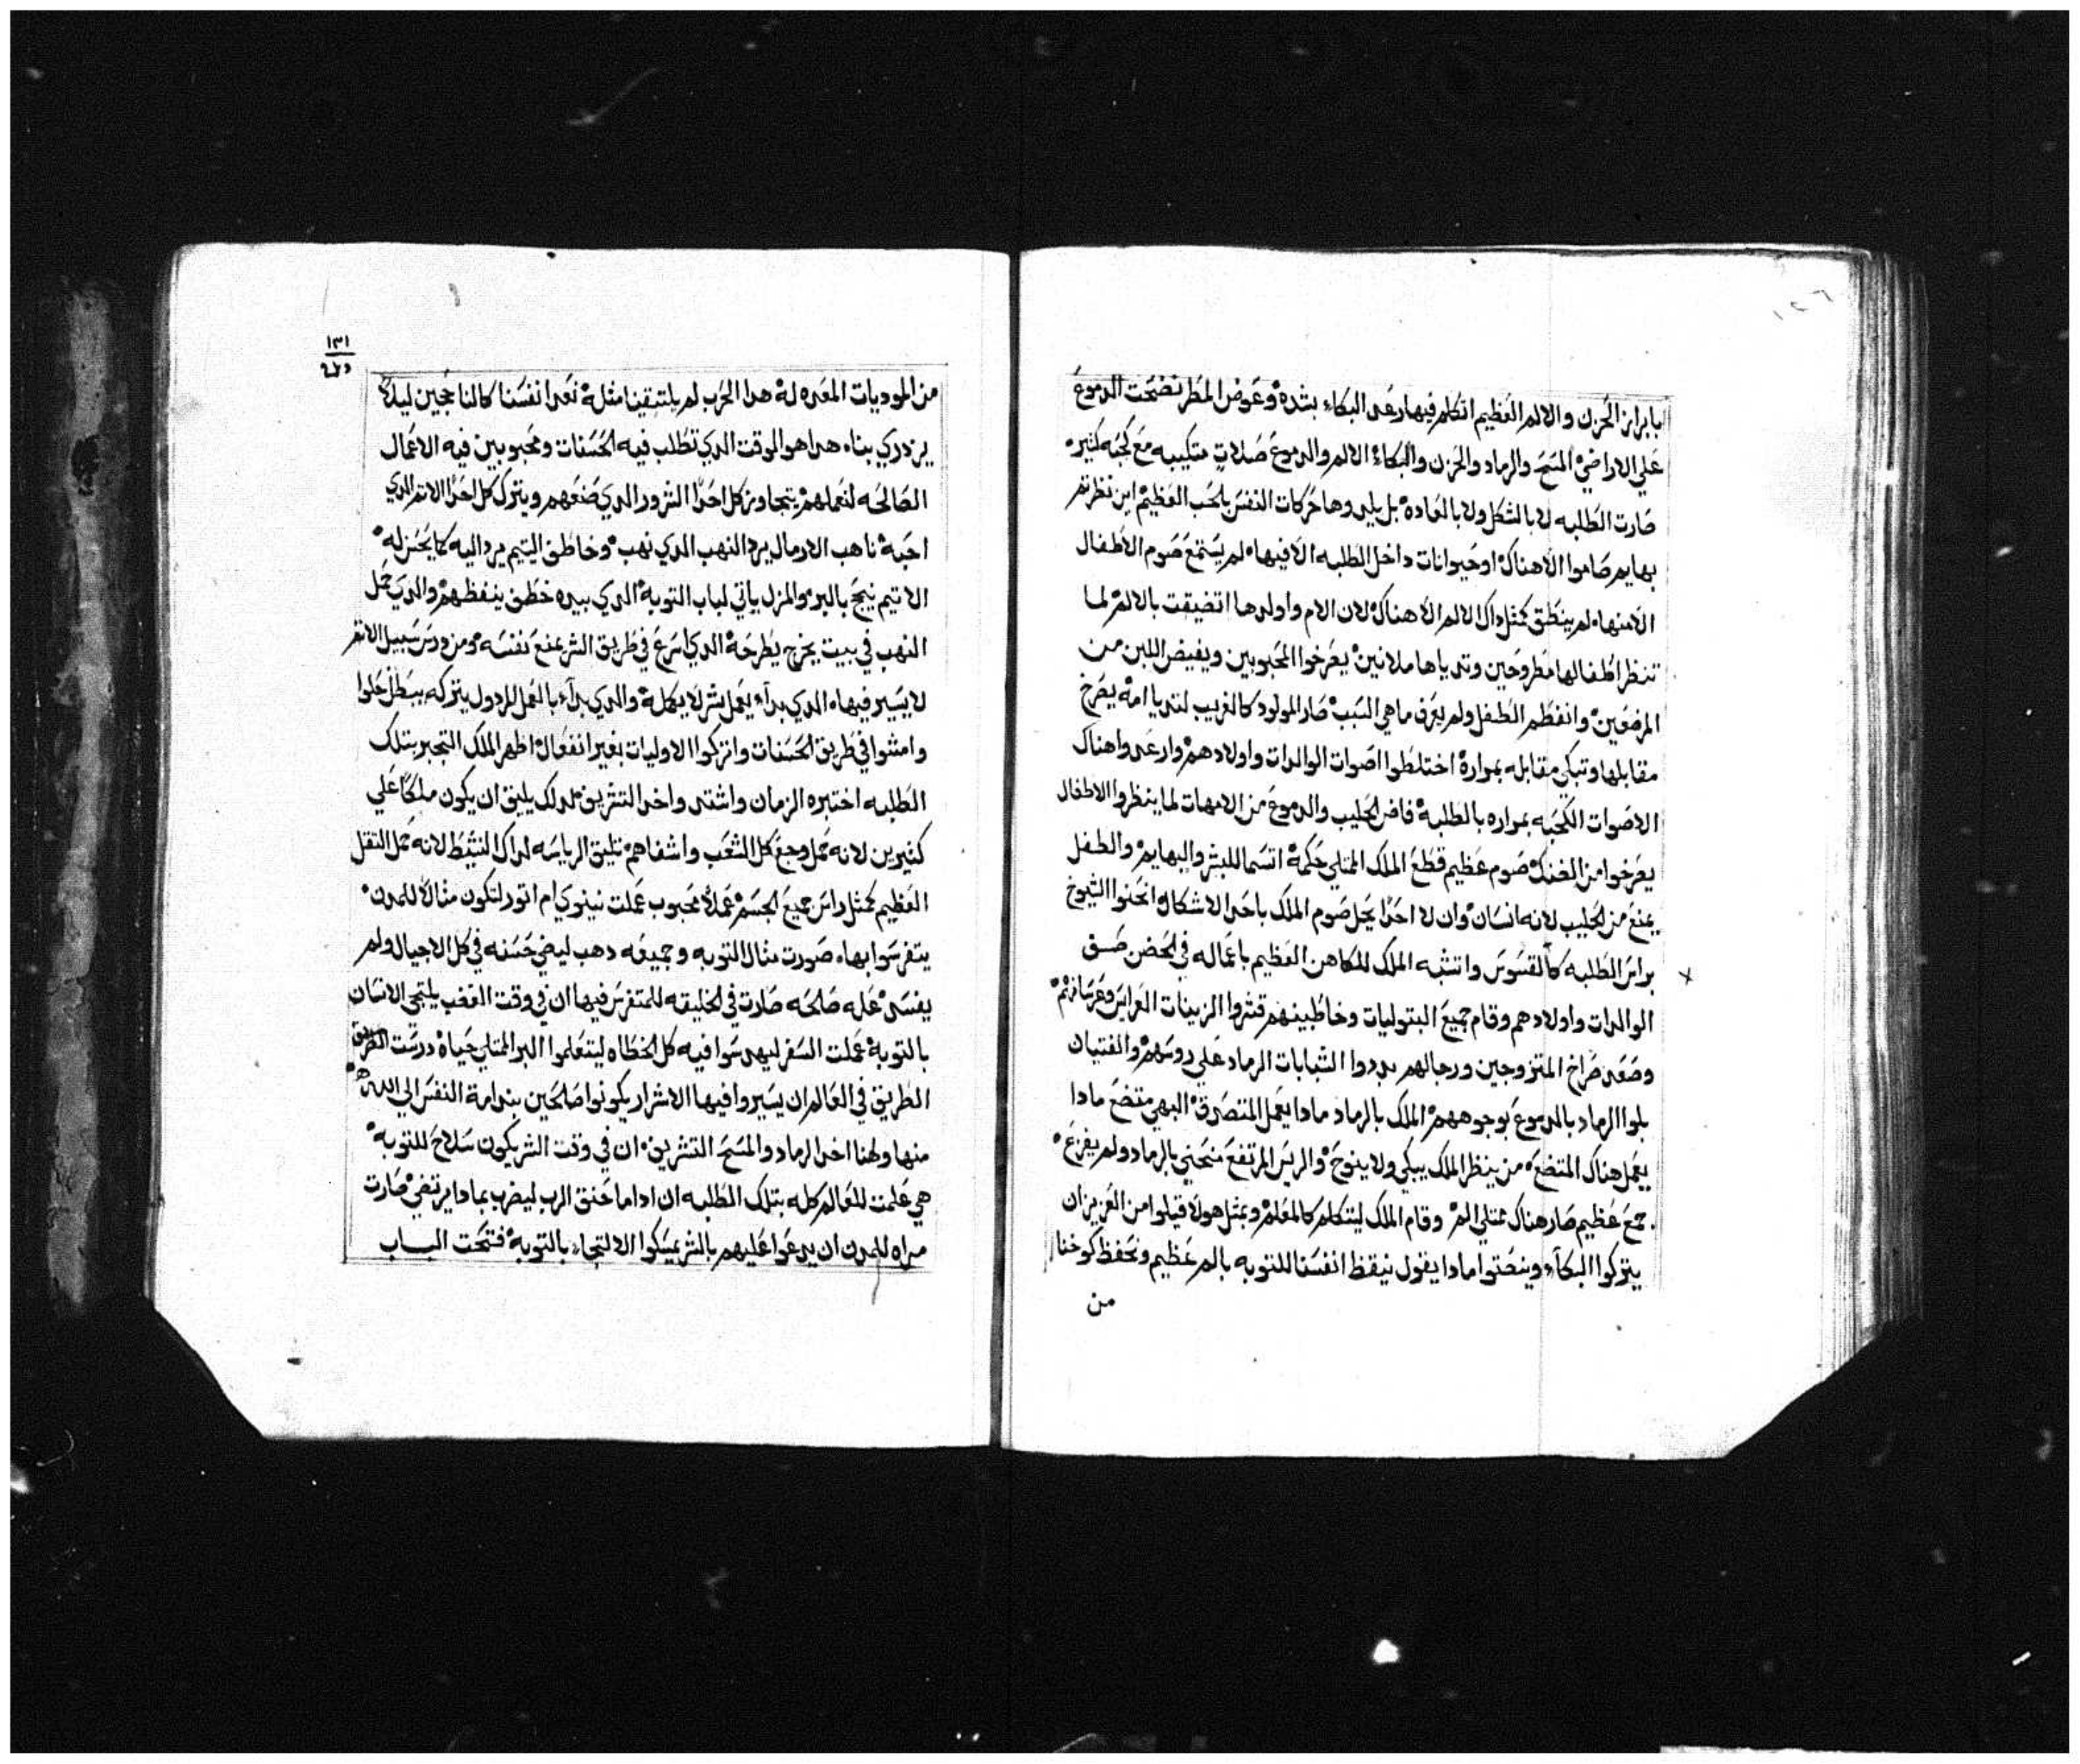 بابراز الحزن والالم العظيم اتكلم فيها رعد البكاء بشده وعوض المطر نضحت الدموع
علي الاراضي المسح والرماد والحزن والبكاء الالم والدموع صلات متكيبه مع كجبه كثيره
صارت الطلبه لا بالشكل ولا بالعاده بل يلدوها حركات النفس بالحب العظيم اين نظرتم
بهايم صاموا الا هناك او حيوانات داخل الطلبه الا فيها لم يستمع صوم الاطفال
الا منها لم ينطق كمثل داك الالم الا هناك لان الام واولدها اتضيقت بالالم لما
تنظر اطفالها مطروحين وتدياها ملانين يعرخوا المحبوبين ويفيض اللبن من
المرضعين وانفطم الطفل ولم يعرف ما هي السبب صار المولود كالغريب لتديا امه يصرخ
مقابلها وتبكي مقابله بمرارة اختلطوا اصوات الوالدات واولادهم وارعدوا هناك
الاصوات الكجبه بمراره بالطلبة فاض الحليب والدموع من الامهات لما ينظروا الاطفال
يعرخوا من الضنك صوم عظيم قطع الملك الممتلي حكمة اتسما للبشر والبهايم والطفل
يمنع من الحليب لانه انسان وان لا احدا يحل صوم الملك باحد الاشكال انحنوا الشيوخ
براس الطلبه كالقسوس واتشبه الملك للكاهن العظيم باعماله في الحضن صق
الوالدات واولادهم وقام جميع البتوليات وخاطبينهم قشروا الزينات العرايس وعرسانهم
وصعد صراخ المتزوجين ورجالهم بددوا الشبابات الرماد علي روسهم والفتيان
بلوا الرماد بالدموع بوجوههم الملك بالرماد مادا يعمل المتصدق البهي متضع مادا
يعمل هناك المتضع من ينظر الملك يبكي ولا ينوح والريس المرتفع منحني بالرماد ولم يفزع
جمع عظيم صار هناك ممتلي الم وقام الملك ليتكلم كالمعلم وبمثل هولا قيلوا من العزيز ان
يتركوا البكاء وينصتوا مادا يقول نيقظ انفسنا للتوبه بالم عظيم ونحفظ كوخنا
من
١٣١
من الموديات المعده له هدا الحرب لم يلتقينا مثله نعد انفسنا كالناجحين ليلا
يزدري بناء هدا هو الوقت الدي تطلب فيه الحسنات ومحبوبين فيه الاعمال
الصالحه لنعملهم يتجاوز كل احدا الشرور الدي صنعهم ويترك كل احدا الاتم الدي
احبه ناهب الارمال يرد النهب الدي نهب وخاطف اليتيم يرد اليه كما يحسن له
الاتيم ينجح بالبر والمزل ياتي لباب التوبة الدي بيده خطف ينفظهم والدي حمل
النهب في بيت يخرج يطرحه الدي اسرع في طريق الشر يمنع نفسه ومن درس سبيل الاتم
لا يسير فيها الدي بداء يعمل بشر لا يكمله والدي بداء بالعمل المردول يتركه يبطل حلوا
وامشوا في طريق الحسنات واتركوا الاوليات بغير انفعال اظهر الملك التجبر بتلك
الطلبه اختبره الزمان واشتد واخد التشريف لدلك يليق ان يكون ملكا علي
كثيرين لانه حمل وجع كل الشعب واشفاهم تليق الرياسه لداك النشيط لانه حمل التقل
العظيم كمثل راس جميع الجسم عملا محبوب عملت نينوي ام اتور لتكون مثالا للمدن
يتفرسوا بها صورت مثال التوبه وجميعه دهب ليضي حسنه في كل الاجيال ولم
يفسد عله صالحه صارت في الخليقه للمتفرس فيها ان في وقت الغضب يلتجي الانسان
بالتوبة عملت السفر ليهدسوا فيه كل الخطاه ليتعلموا البر الممتلي حياة درست الطريق
الطريق في العالم ان يسيروا فيها الاشرار يكونوا صالحين بندامة النفس الي الله
منها ولهنا اخد الرماد والمسح التشريف ان في وقت الشر يكون سلاح للتوبه
هي علمت للعالم كله بتلك الطلبه ان اداما حنق الرب ليضرب بمادا يرتضي صارت
مراه للمدن ان يدعوا عليهم بالشر يمسكوا الالتجاء بالتوبة فتحت الباب